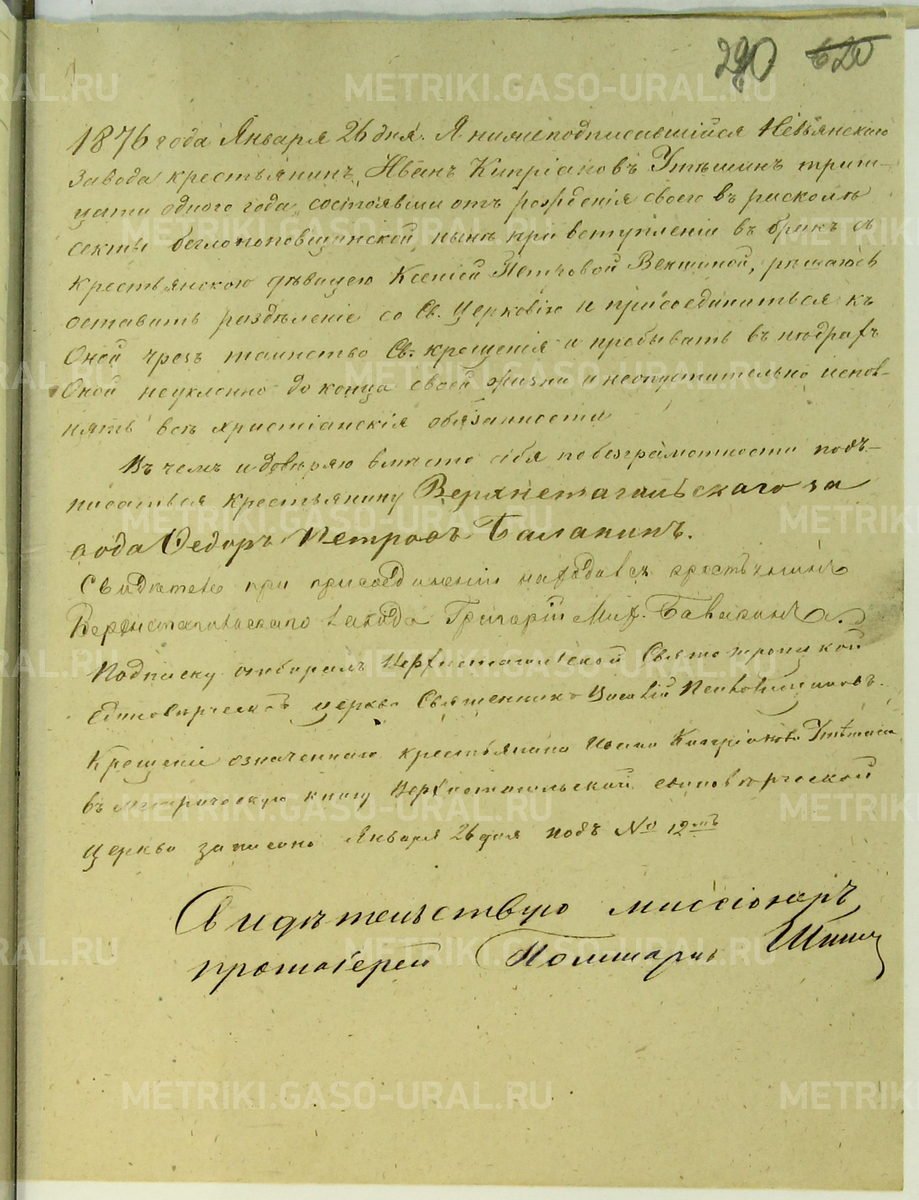 290 620
1876 года Января 26 дня. Я нижеподписавшійся Невьянскаго
Завода крестьянинъ Иванъ Кипріановъ Утѣшинъ трит-
цати одного года, состоявши отъ рожденія своего въ расколѣ
секты беглопоповщинской, нынѣ при вступленіи въ бракъ съ
крестьянскою дѣвицею Ксеніей Петровой Векшиной, рѣшаюсь
оставить раздѣленіе со Св. Церковію и присоединиться къ
Оной чрезъ таинство Св. крещенія и пребывать въ нѣдрахъ
Оной неуклонно до конца своей жизни и неопустительно испол-
нять всѣ христіанскія обязанности
Въ чемъ и довѣряю вмѣсто себя по безграмотности подъ-
писаться крестьянину Верхнетагильскаго за
вода Федоръ Петровъ Балакинъ.
Свидѣтель при присоединеніи находился крестьянинъ
Верхнетагильскаго завода Григорій Мих.
Подписку отбиралъ Верхнетагильской Свято троицкой
Единовѣрческой церкви Священникъ
Крещеніе означеннаго крестьянина Ивана Кипріанова Утѣшина
въ метрическую книгу Верхнетагильской единовѣрческой
церкви записано Января 26 дня подъ № 12мъ
Свидѣтельствую миссіонеръ
протоіерей
METRIKI.GASO-URAL.RU